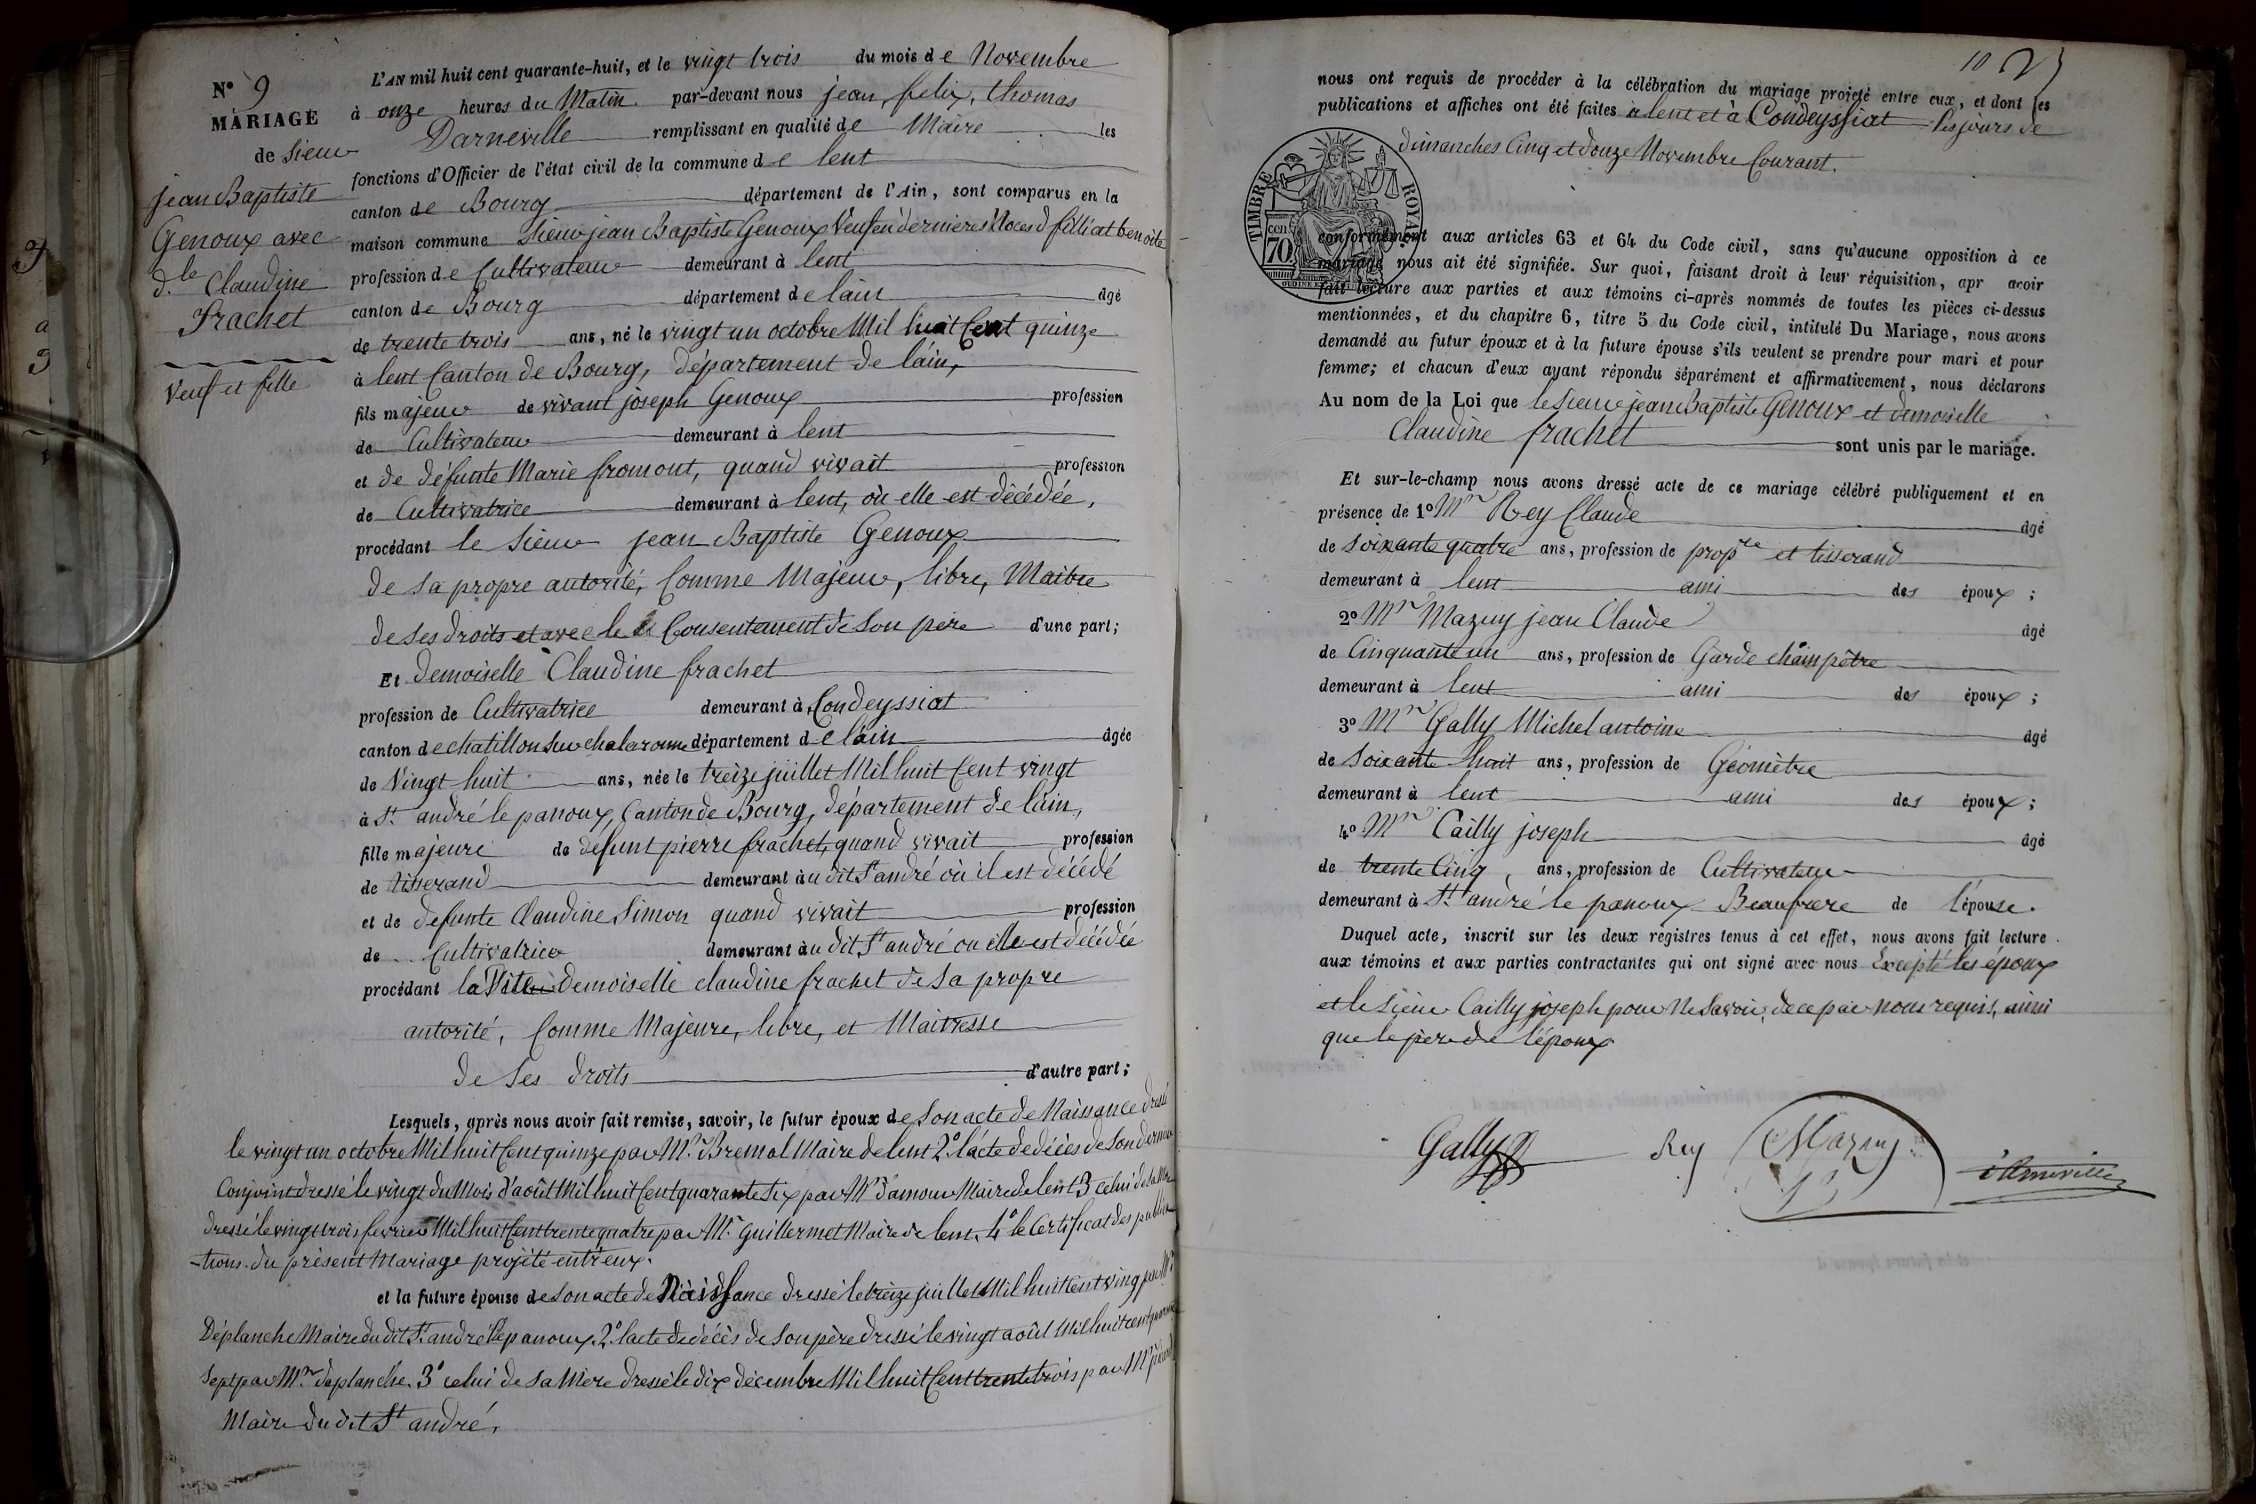 N° 9
MARIAGE
de Sieur
jean Baptiste
Genoux avec
d.le Claudine
Frachet
Veuf et fille
L'AN mil huit cent quarante-huit, et le vingt trois du mois de Novembre
à onze heures du Matin par-devant nous jean, felix, thomas
Darneville remplissant en qualité de Maire les
fonctions d'Officier de l'état civil de la commune de lent
canton de Bourg département de l'Ain, sont comparus en la
maison commune Sieur jean Baptiste Genoux Veuf en dernieres Noces d filliat benoite
profession de Cultivateur demeurant à lent
canton de Bourg département de lain âgé
de trente trois ans, né le vingt un octobre Mil huit Cent quinze
à lent Canton de Bourg, département de lain,
fils majeur de vivant joseph Genoux profession
de Cultivateur demeurant à lent
et de défunte Marie fromont, quand vivait profession
de Cultivatrice demeurant à lent, où elle est décédée,
procédant le Sieur jean Baptiste Genoux
de sa propre autorité, Comme Majeur, libre, Maitre
de ses droits et avec le Consentement de Son père d'une part;
Et Demoiselle Claudine frachet
profession de Cultivatrice demeurant à Condeyssiat
canton de chatillon sur chalaronne département de lain âgée
de Vingt huit ans, née le treize juillet Mil huit Cent vingt
à St andré le panoux, Canton de Bourg, département de lain,
fille majeure de défunt pierre frachet, quand vivait profession
de tisserand demeurant au dit St andré où il est décédé
et de defunte Claudine Simon quand vivait profession
de Cultivatrice demeurant au dit St andré ou elle est décédée
procédant la Demoiselle claudine frachet de sa propre
autorité, Comme Majeure, libre, et Maitresse
de Ses droits d'autre part;
Lesquels, après nous avoir fait remise, savoir, le futur époux de son acte de Naissance dressé
le vingt un octobre Mil huit Cent quinze par Mr. Bremal Maire de lent 2° l'acte de décès de son dernier
Conjoint dressé le vingt du Mois d'août Mil huit Cent quarante six par Mr d'amour Maire de lent 3 celui de la Mère
dressé le vingt trois fevrier Mil huit Cent trente quatre par Mr. Guillermet Maire de lent, 4° le Certificat des publica
-tions du présent Mariage projété entr'eux.
et la future épouse de son acte de Naissance dressé le treize juillet Mil huit Cent vingt par Mr
Déplanche Maire du dit St andré le panoux 2° l'acte de décès de son père dressé le vingt août Mil huit cent quarante
sept par Mr déplanche 3° celui de sa Mère dressé le dix décembre Mil huit Cent trente trois par Mr
Maire du dit St andré.
10
nous ont requis de procéder à la célébration du mariage projeté entre eux, et dont les
publications et affiches ont été faites à lent et à Condeyssiat les jours de
dimanches Cinq et douze Novembre Courant.
TIMBRE ROYAL
cen
70.
conformément aux articles 63 et 64 du Code civil, sans qu'aucune opposition à ce
mariage nous ait été signifiée. Sur quoi, faisant droit à leur réquisition, apr avoir
fait lecture aux parties et aux témoins ci-après nommés de toutes les pièces ci-dessus
mentionnées, et du chapitre 6, titre 5 du Code civil, intitulé Du Mariage, nous avons
demandé au futur époux et à la future épouse s'ils veulent se prendre pour mari et pour
femme; et chacun d'eux ayant répondu séparément et affirmativement, nous déclarons
Au nom de la Loi que le Sieur jean Baptiste Genoux et demoiselle
Claudine frachet sont unis par le mariage.
Et sur-le-champ nous avons dressé acte de ce mariage célébré publiquement et en
présence de 1° Mr Rey Claude âgé
de soixante quatre ans, profession de propre et tisserand
demeurant à lent ami des époux;
2° Mr Mazuy jean Claude âgé
de Cinquante un ans, profession de Garde champêtre
demeurant à lent ami des époux;
3° Mr Gally Michel antoine âgé
de Soixante huit ans, profession de Géomètre
demeurant à lent ami des époux;
4° Mr Cailly joseph âgé
de trente Cinq, ans, profession de Cultivateur
demeurant à St andré le panoux Beaufrere de l'épouse.
Duquel acte, inscrit sur les deux registres tenus à cet effet, nous avons fait lecture
aux témoins et aux parties contractantes qui ont signé avec nous Excepté les époux
et le sieur Cailly joseph pour Ne Savoir, de ce par nous requis, ainsi
que le père de l'époux
Gally Rey Mazuy dArneville